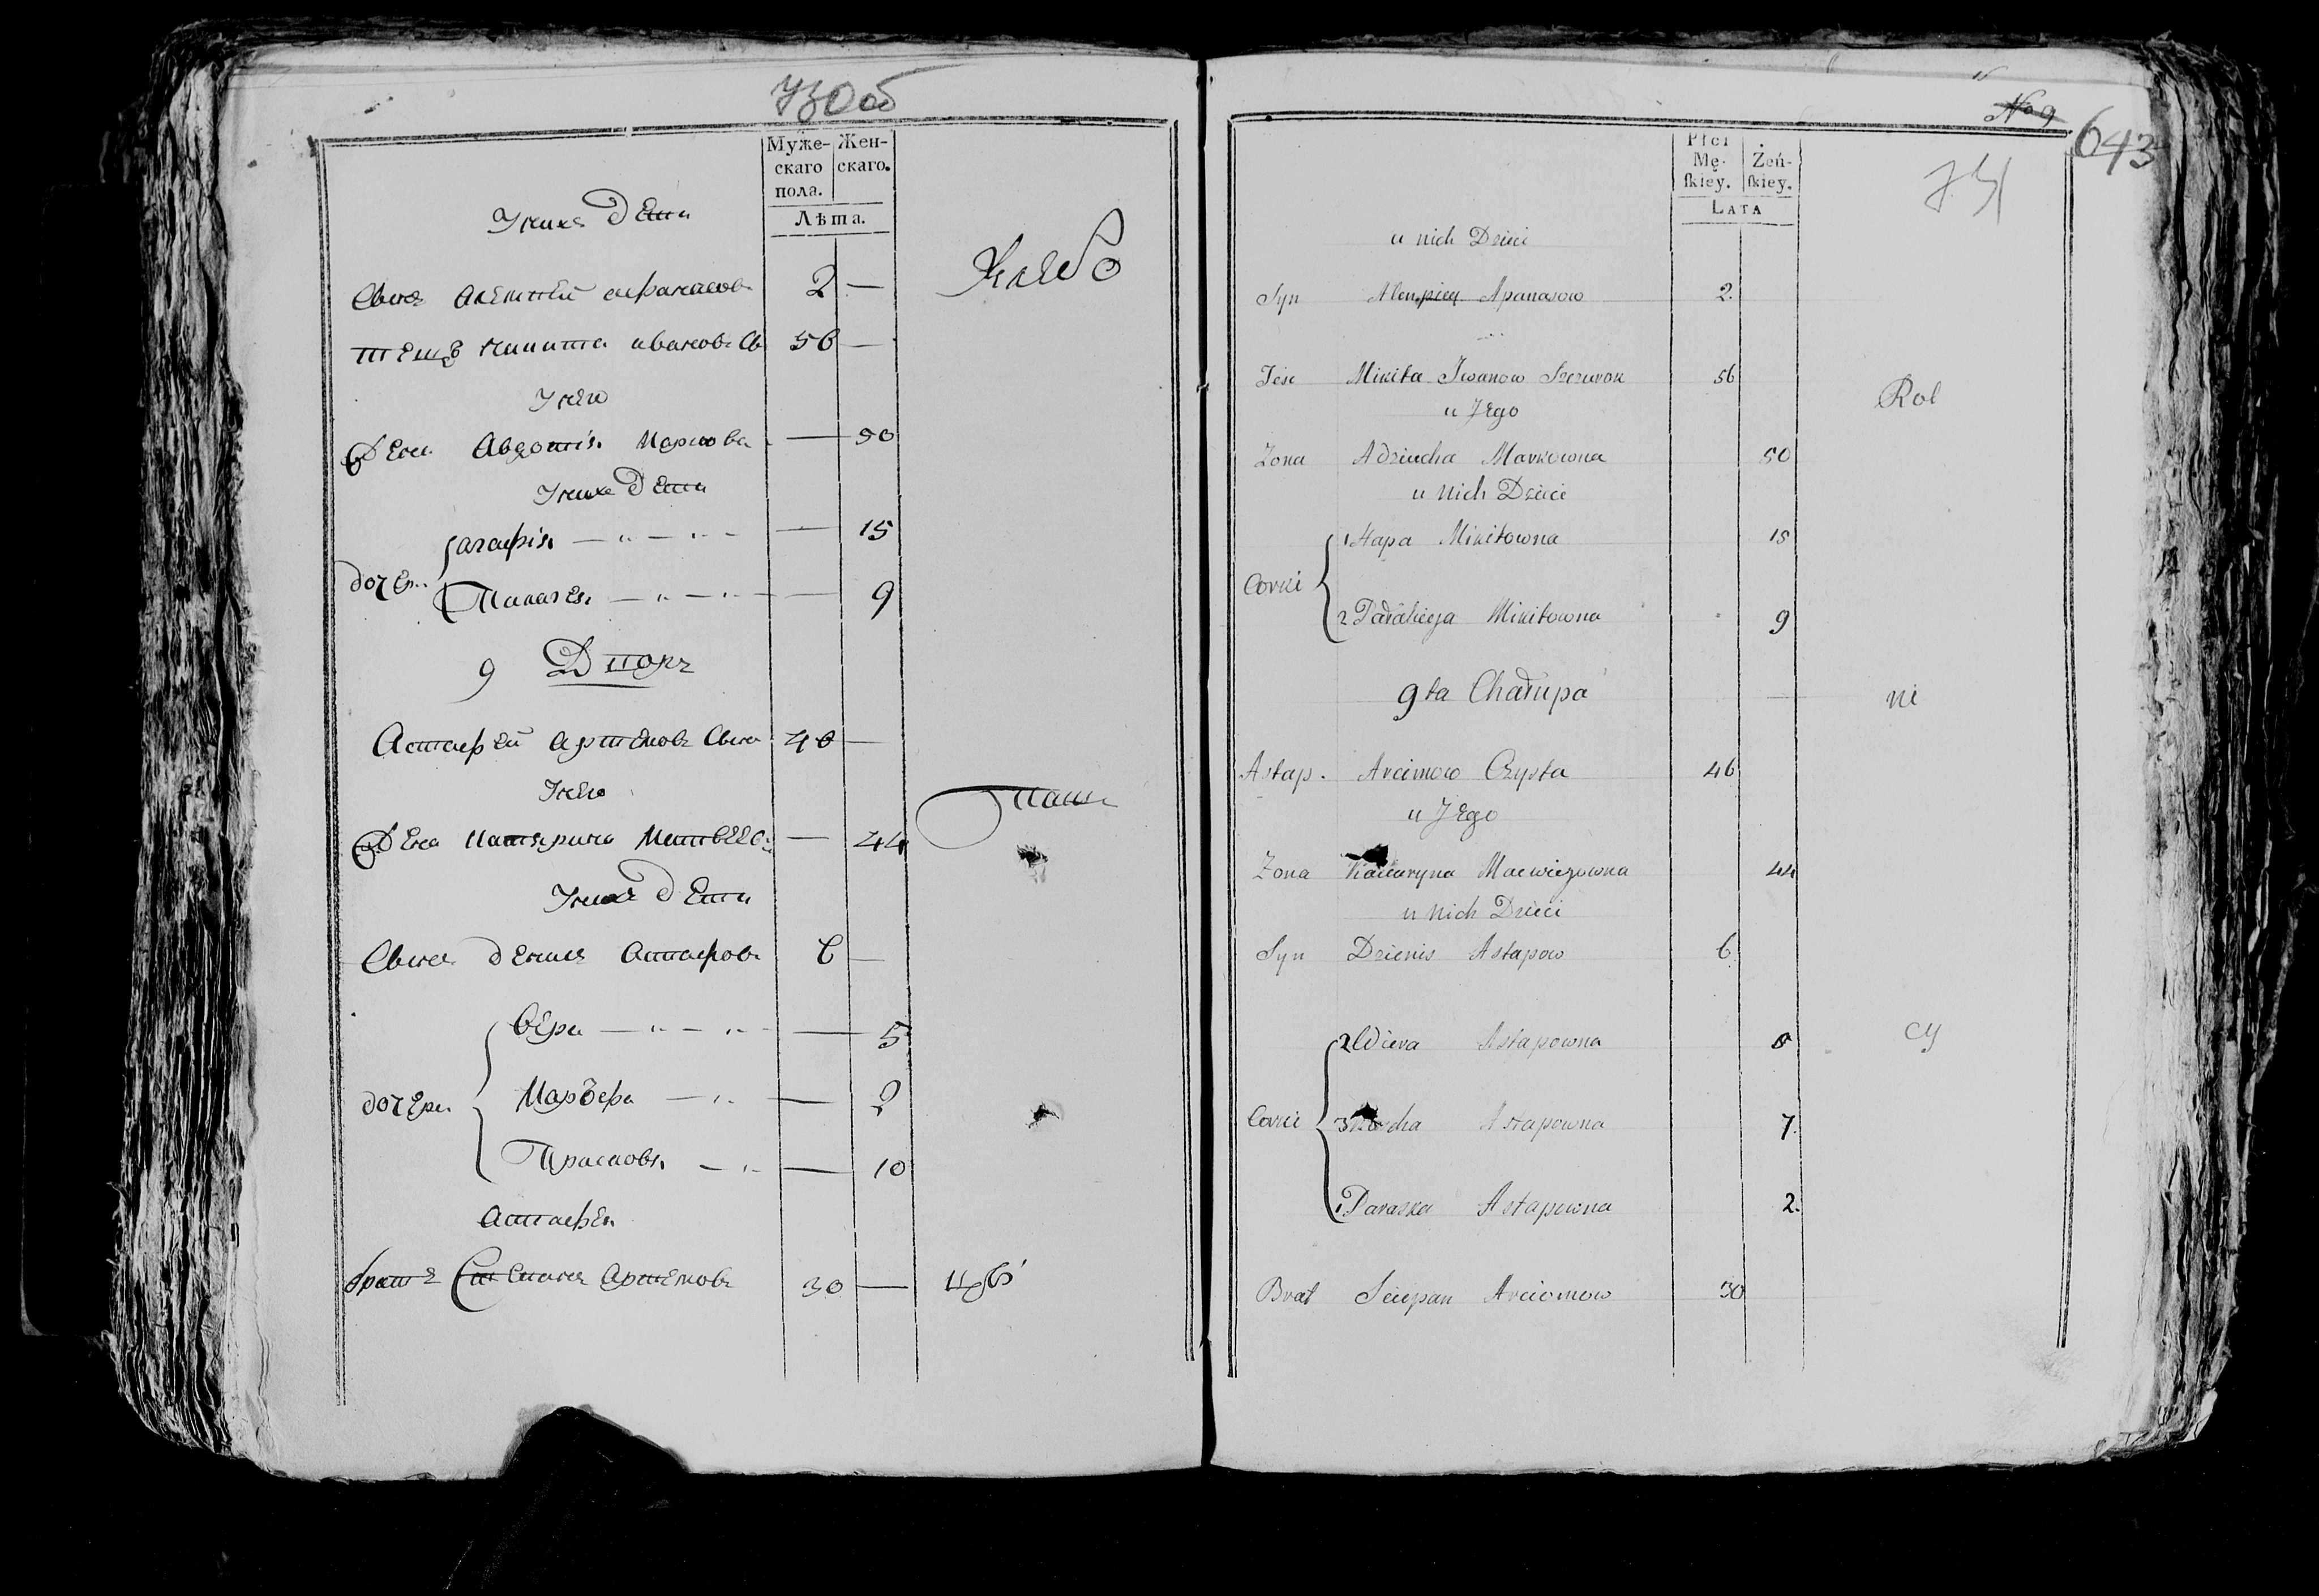 730об
Муже-
скаго
пола.
Жен-
скаго.
Лѣта.
У нихъ дети
Сынъ Алексей Афанасовъ 2 —
Хлебо
тещь Никита Ивановъ Съ 56 —
У него
Жена Авдотія Маркова — 50
У нихъ дети
дочери
Агафія — „ — „ — 15
Палагея — „ — „ — 9
9 Дворъ
Астафей Артемовъ Сынъ 46 —
У него
паш
Жена Катярина Матвеев: — 44
У нихъ дети
Сынъ Денисъ Астафовъ 6 —
дочери
Вера — „ — „ — 5
Марѳефа — „ — 2
Прасковя — „ — 10
Астафея
братъ Степанъ Артемовъ 30 —
цы
No 9
643
731
Płci
Mę-
ſkiey.
Żeń-
ſkiey.
Lata
u nich Dzieci
Syn Apanasow 2.
Tesc Mikita Iwanow Szczurok 56
Rol
u Jego
Zona Adziucha Markowna 50
u nich Dzieci
Corki
1 Hapa Mikitowna 15
2 Pałahieja Mikitowna 9
9ta Chałupa
ni
Astap. Arcimow Czysta 46
u Jego
Zona Kaciaryna Maćwiejowna 44
u nich Dzieci
Syn Dzienis Astapow 6
Corki
2 Wiera Astapowna 5
cy
3 Astapowna 7.
1 Paraska Astapowna 2.
Brat Sciepan Arciomow 30